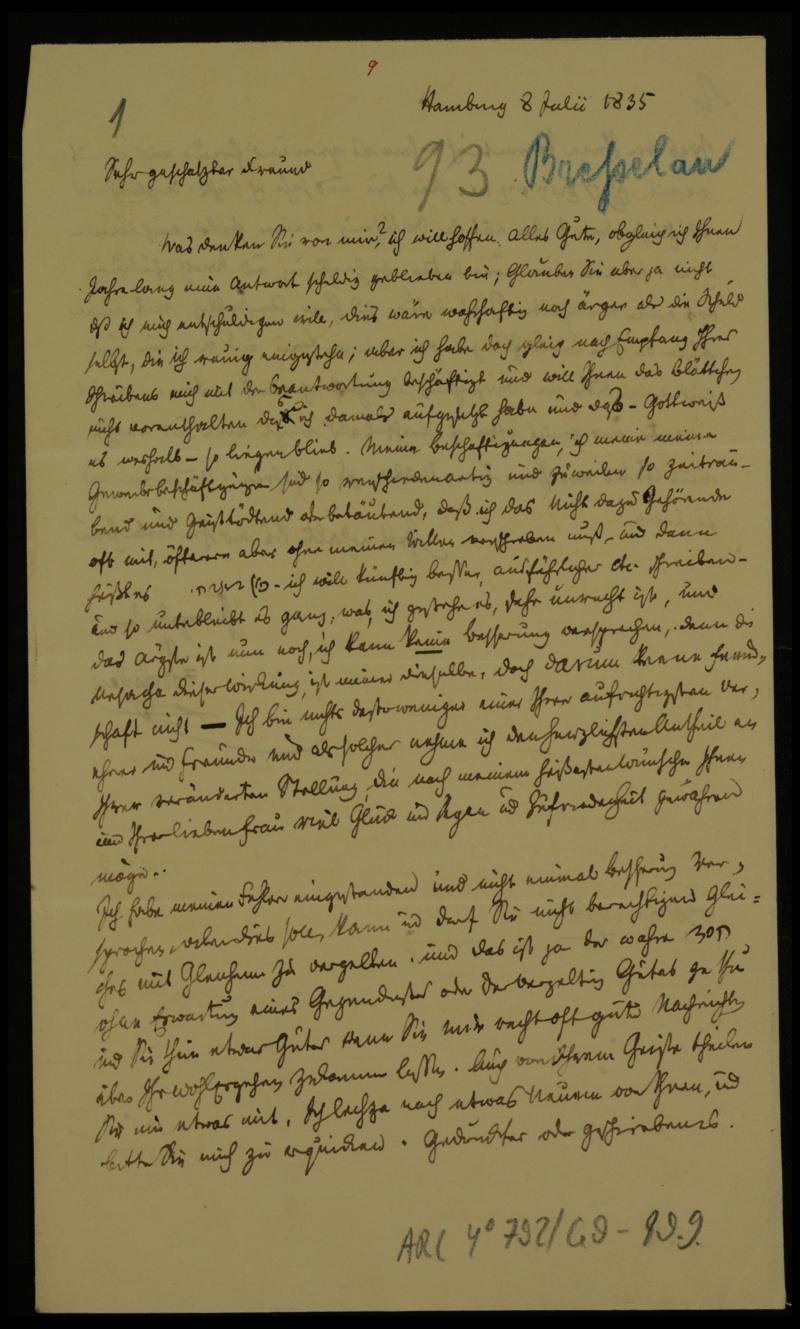 9
1
Hamburg 8 Julii 1835
93 Bresselau
Sehr geschätzter Freund
Was denken Sie von mir? ich will hoffen alles Gute, obgleich ich Ihnen
Jahre lang eine Antwort schuldig geblieben bin; Glauben Sie aber ja nicht
daß ich mich entschuldigen will, dies wäre wahrhaftig noch ärger als die Schuld
selbst, die ich reuig eingestehe; aber ich habe doch gleich nach Empfang Ihres
Schreibens mich mit der Beantwortung beschäftigt und will Ihnen das Blättchen
nicht vorenthalten das ich damals aufgesetzt habe und das – Gott weiß
es weshalb – so liegen blieb. Meine Beschäftigungen, ich meine meine
Gewerbsbeschäftigungen sind so verschiedenartig und zuweilen so zeitrau-
bend und geisttödtend oder betäubend, daß ich das nicht dazu Gehörende
oft mit, öfterer aber ohne meinen Willen verschieben muß, und dann
heißt es – ich will künftig besser, ausführlicher etc. schreiben –
und so unterbleibt es ganz, was, ich gestehe es, sehr unrecht ist, und
das ärgste ist nun noch, ich kann keine Besserung versprechen, denn die
Ursache dieser Wirkung ist immer dieselbe, doch darum keine Feind-
schaft nicht — Ich bin nichts destoweniger einer Ihrer aufrichtigsten Ver-
ehrer und Freunde und als solcher nehme ich den herzlichsten Antheil an
Ihrer veränderten Stellung, die nach meinem heißesten Wunsche Ihnen
und Ihrer lieben Frau viel Glück und Segen und Zufriedenheit gewähren
möge.
Ich habe meinen Fehler eingestanden und nicht einmal Besserung ver-
sprochen, allein dies soll, kann und darf Sie nicht berechtigen Glei-
ches mit Gleichem zu vergelten. und das ist ja der wahre חסד
ohne Erwartung eines Gegendienstes oder der Vergeltung Gutes zu thun
und Sie thun etwas Gutes wenn Sie mir recht oft gute Nachrichten
über Ihr Wohlergehen zukommen lassen. Auch von Ihrem Geiste theilen
Sie mir etwas mit, Ich lechze nach etwas Neuem von Ihnen, und
bitte Sie mich zu erquicken. Gedrucktes oder geschriebenes.
ARC 4° 792/G9-